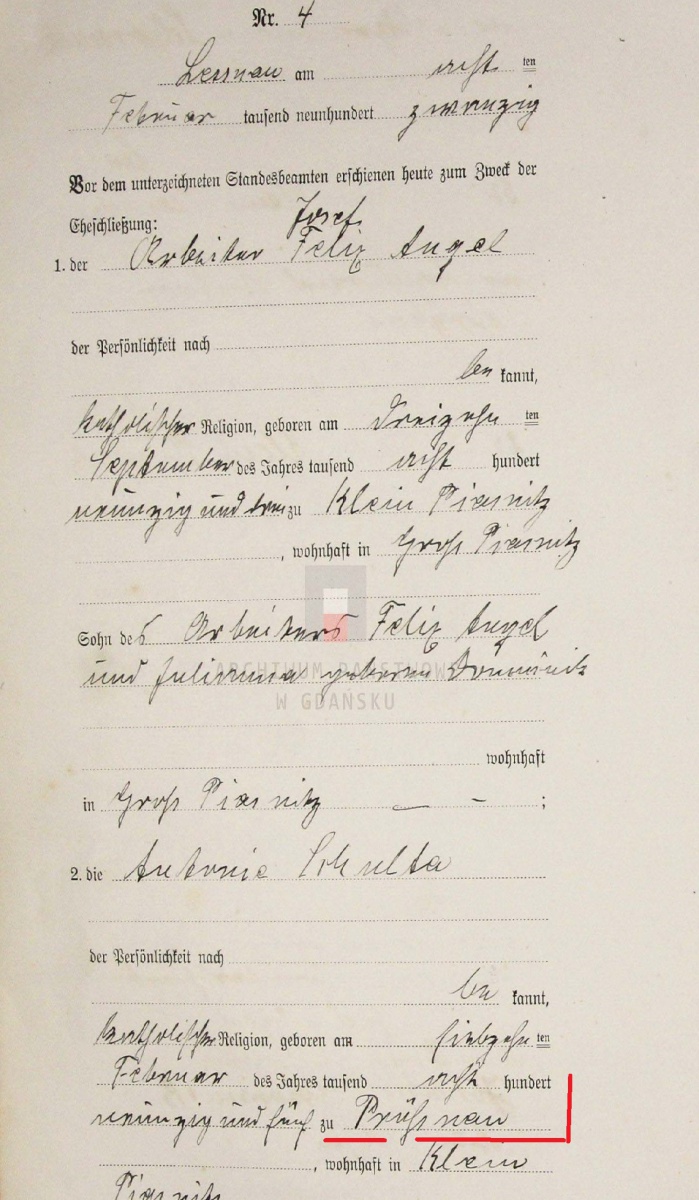 Nr. 4
Lessnau am acht ten
Februar tausend neunhundert zwanzig
Vor dem unterzeichneten Standesbeamten erschienen heute zum Zweck der
Eheschließung:
Josef
1. der Arbeiter Felix Angel
der Persönlichkeit nach
be kannt,
katholischer Religion, geboren am dreizehn ten
September des Jahres tausend acht hundert
neunzig und drei zu Klein Piasnitz
, wohnhaft in Groß Piasnitz
Sohn des Arbeiters Felix Angel
und Julianna geborene
ARCHIWUM PAŃSTWOWE
W GDAŃSKU
wohnhaft
in Groß Piasnitz ;
2. die Antonie Schulta
der Persönlichkeit nach
be kannt,
katholischer Religion, geboren am siebzehn ten
Februar des Jahres tausend acht hundert
neunzig und fünf zu Prüßnau
, wohnhaft in Klein
Piasnitz